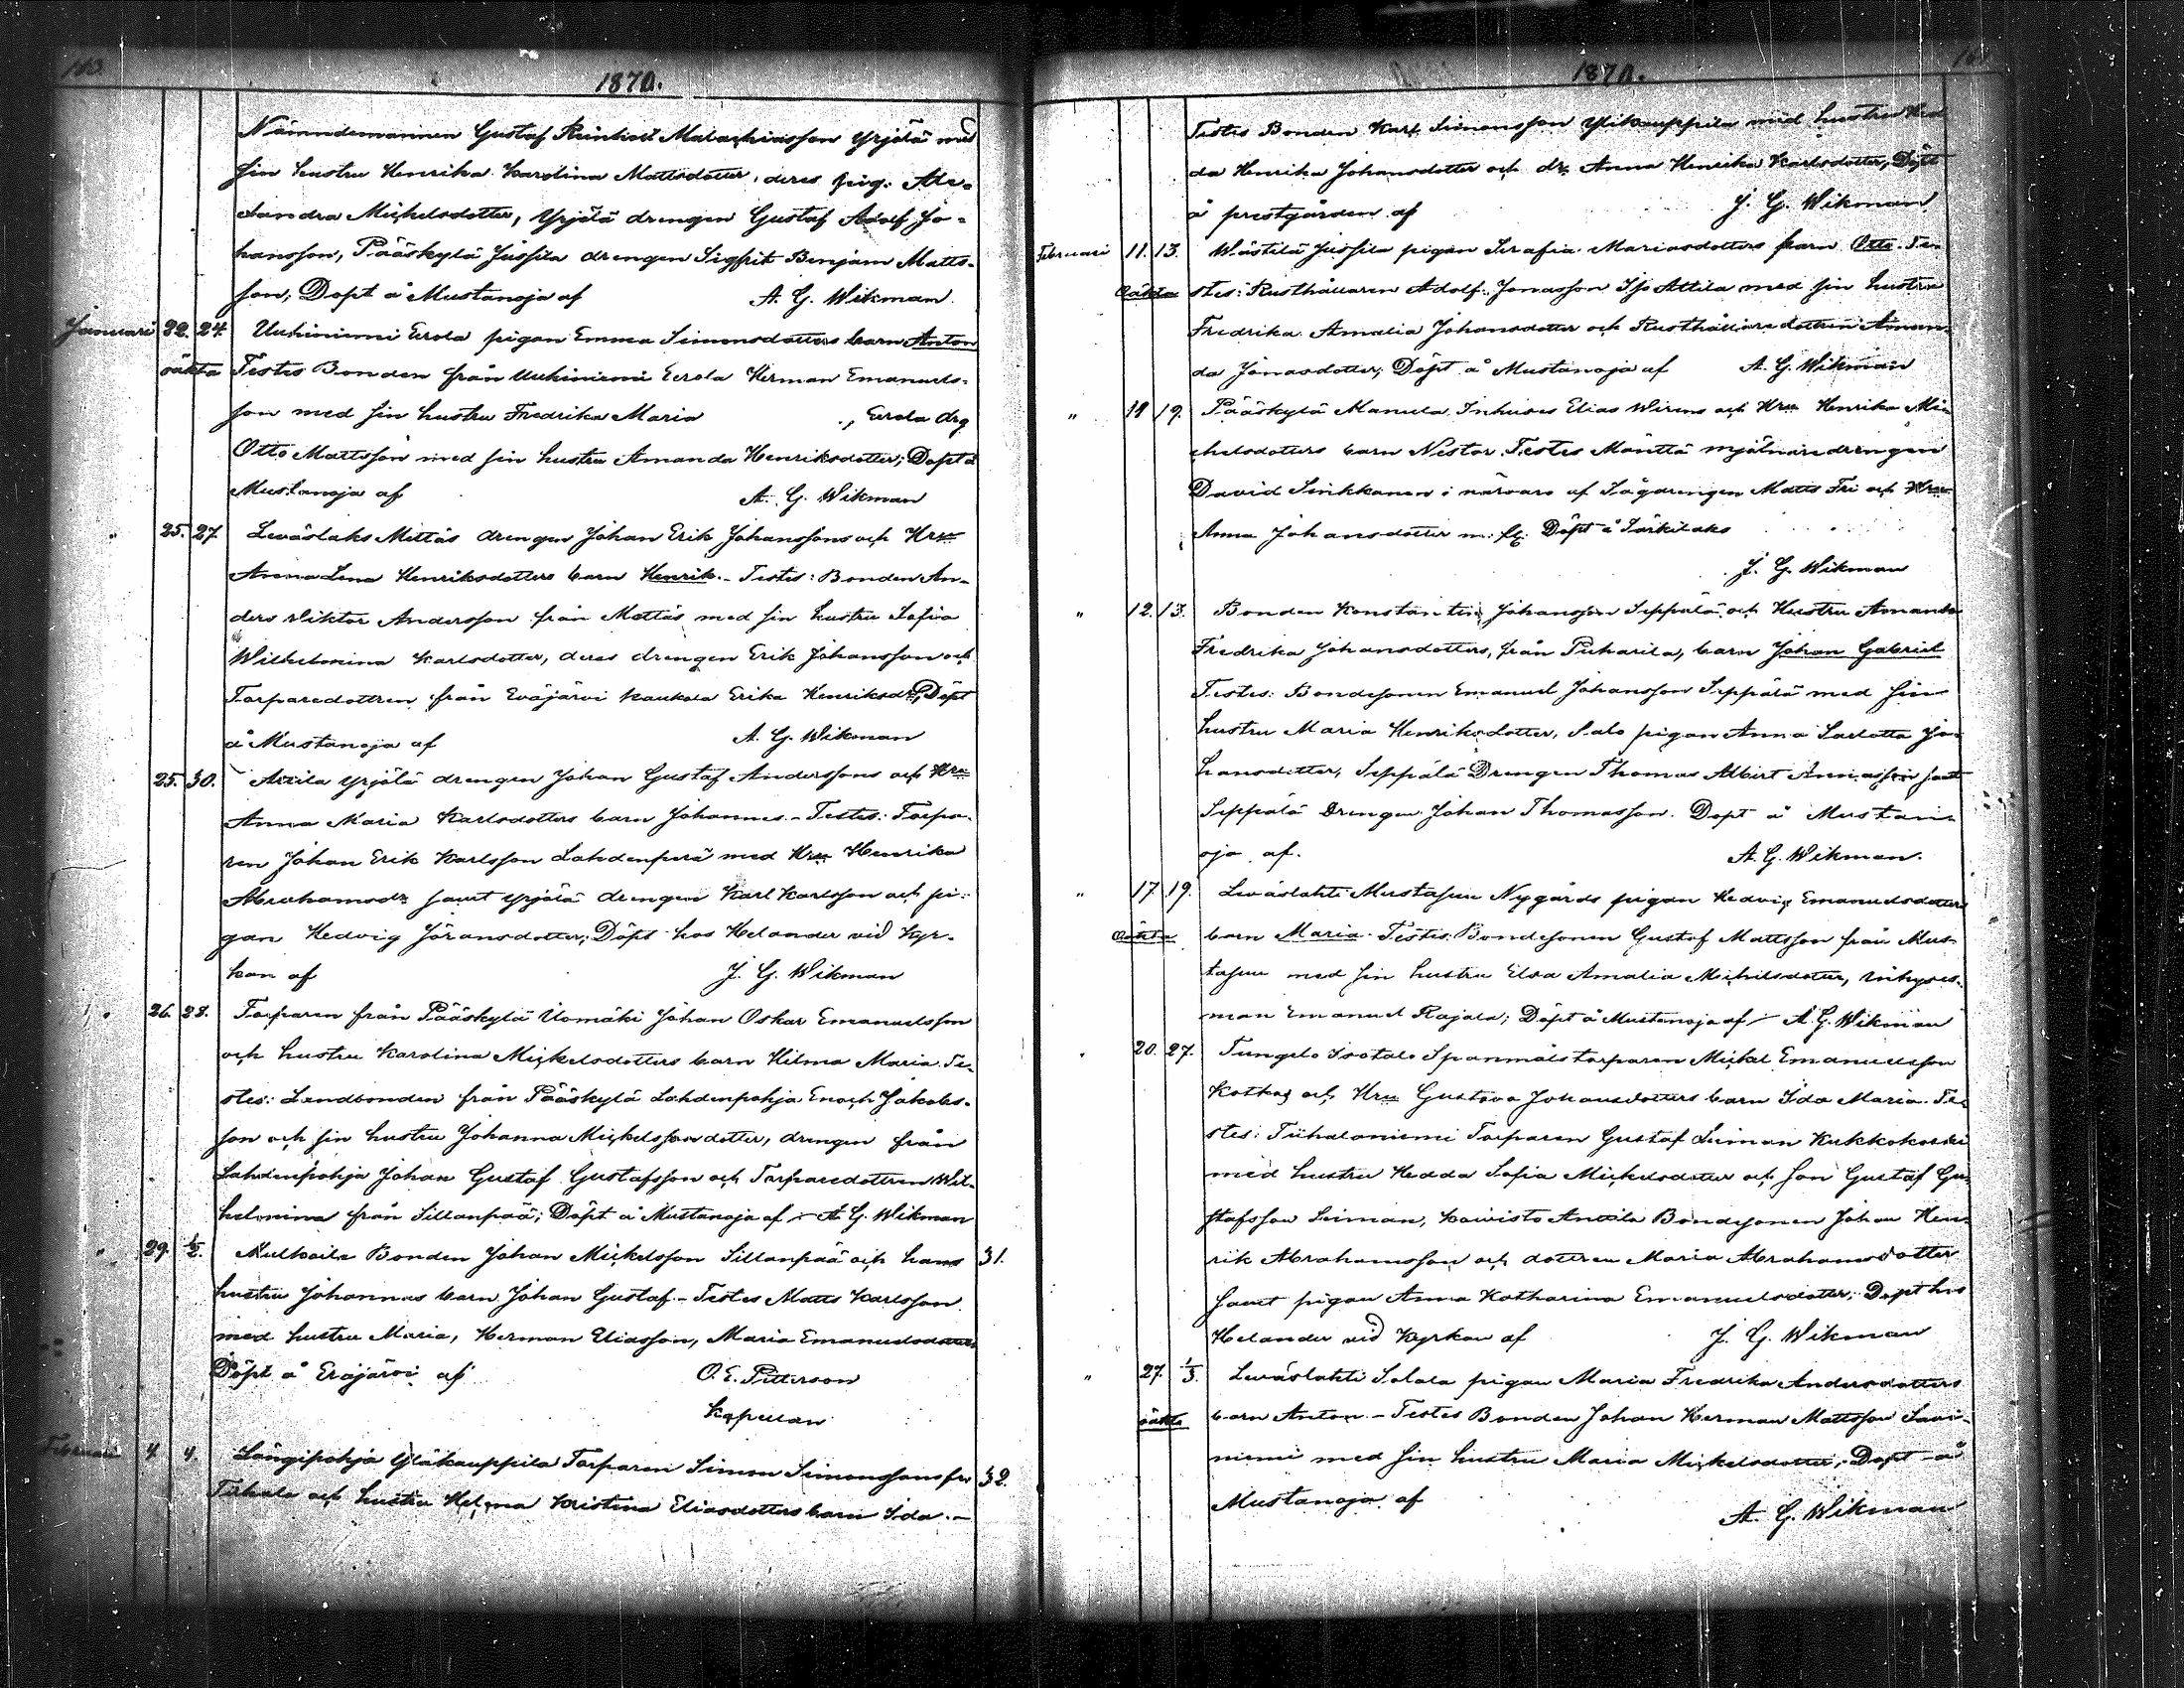 103
1870.
Nämndemannen Gustaf Reinhold Malachiasson Yrjölä med
sin hustru Henrika Karolina Mattsdotter, deras pig. Ale-
sandra Michelsdotter, Yrjölä drengen Gustaf Adolf Jo-
hansson, Pääskylä Jussila drengen Sigfrit Benjam Matts-
son, Döpt å Mustanoja af A. G. Wikman.
Januari 22. 24. Uuhiniemi Erola pigan Emma Simonsdotters barn Anton
oäkta Testes Bonden från Uuhiniemi Eerola Herman Emanuels-
son med sin hustru Fredrika Maria ., Erola drg
Otto Mattsson med sin hustru Amanda Henriksdotter; Döpt å
Mustanoja af A. G. Wikman
" 25. 27 Leväslaks Mettäs drengen Johan Erik Johanssons och Hru
Anna Lena Henriksdotters barn Henrik.- Testes: Bonden An-
ders Viktor Andersson från Mettäs med sin hustru Sofia
Wilhelmina Karlsdotter, deras drengen Erik Johansson och
Torparedottren från Eväjärvi Kaukola Erika Henriksdr, Döpt
å Mustanoja af A. G. Wikman
25. 30. Attila Yrjölä drengen Johan Gustaf Anderssons och Hru
Anna Maria Karlsdotters barn Johannes.- Testes: Torpa-
ren Johan Erik Karlsson Lahdenperä med Hru Henrika
Abrahamsdr samt Yrjölä drengen Karl Karlsson och pi-
gan Hedvig Göransdotter; Döpt hos Helander vid Kyr-
kan af J. G. Wikman
" 26. 28. Torparen från Pääskylä Uomäki Johan Oskar Emanuelsson
och hustru Karolina Michelsdotters barn Hilma Maria. Te-
stes: Landbonden från Pääskylä Lahdenpohja Enoch Jakobs-
son och sin hustru Johanna Mickelssondotter, drengen från
Lahdenpohja Johan Gustaf Gustafsson och Torparedottren Wil-
helmina från Sillanpää; Döpt å Mustanoja af A. G. Wikman
" 29. 1/2. Kulkaila Bonden Johan Mickelsson Sillanpää och hans 31.
hustru Johannas barn Johan Gustaf.- Testes Matts Karlsson
med hustru Maria, Herman Eliasson, Maria Emanuelsdotter
Döpt å Eräjärvi af O. E. Petterson
Kapellan
Februari 4. 4. Längipohja Yläkauppila Torparen Simon Simonssons frn 32.
Tiihala och hustru Helena Kristina Eliasdotters barn Ida.-
1870.
Testes Bonden Karl Simonsson Ylikauppila med hustru Hed
da Henrika Johansdotter och dr. Anna Henrika Karlsdotter, Döpt
å prestgården af J. G. Wikman
Februari 11. 13. Wästilä Jussila pigan Serafia Mariasdotters barn Otto. Te-
Oäkta stes: Rusthållaren Adolf Jonasson Iso Attila med sin hustru
Fredrika Amalia Johansdotter och Rusthållaredottren Aman-
da Jonasdotter; Döpt å Mustanoja af A. G. Wikman
" 18 19. Pääskylä Manula Inhuses Elias Wirens och Hru Henrika Mi-
chelsdotters barn Nestor. Testes Mänttä mjölnaredrengen
David Sinkkanen i närvaro af Sågdrengen Matts Fri och Hru
Anna Johansdotter m. fl. Döpt å Särkilaks
J. G. Wikman
" 12. 13. Bonden Konstantin Johansson Seppälä och Hustru Amanda
Fredrika Johansdotters, från Puharila, barn Johan Gabriel
Testes: Bondesonen Emanuel Johansson Seppälä med sin
hustru Maria Henriksdotter, Salo pigan Anna Sarlotta Jo-
hansdotter, Seppälä Drengen Thomas Albert Annasson samt
Seppälä Drengen Johan Thomasson. Döpt å Mustan-
oja af. A. G. Wikman.
" 17 19. Leväslahti Mustasuu Nygårds pigan Hedvig Emanuelsdotters
Oäkta barn Maria. Testes: Bondesonen Gustaf Mattsson från Mus-
tasuu med sin hustru Elva Amalia Michelsdotter, inhyses-
man Emanuel Rajala; Döpt å Mustanoja af A. G. Wikman
" 20. 27. Tungelo Isotalo Spanmålstorparen Mickel Emanuelsson
Kotkas och Hru Gustava Johansdotters barn Ida Maria. Te-
stes: Tiihalaniemi Torparen Gustaf Leiman Kukkokoski
med hustru Hedda Sofia Mickelsdotter och son Gustaf Gu-
stafsson Leiman, Koivisto Anttila Bondesonen Johan Hen-
rik Abrahamsson och dottren Maria Abrahamsdotter
samt pigan Anna Katharina Emanuelsdotter; Döpt hos
Helander vid Kyrkan af J. G. Wikman
" 27. 1/3. Leväslahti Salala pigan Maria Fredrika Andersdotters
oäkta barn Anton.- Testes Bonden Johan Herman Mattsson Savi-
niemi med sin hustru Maria Mickelsdotter; Döpt å
Mustanoja af A. G. Wikman